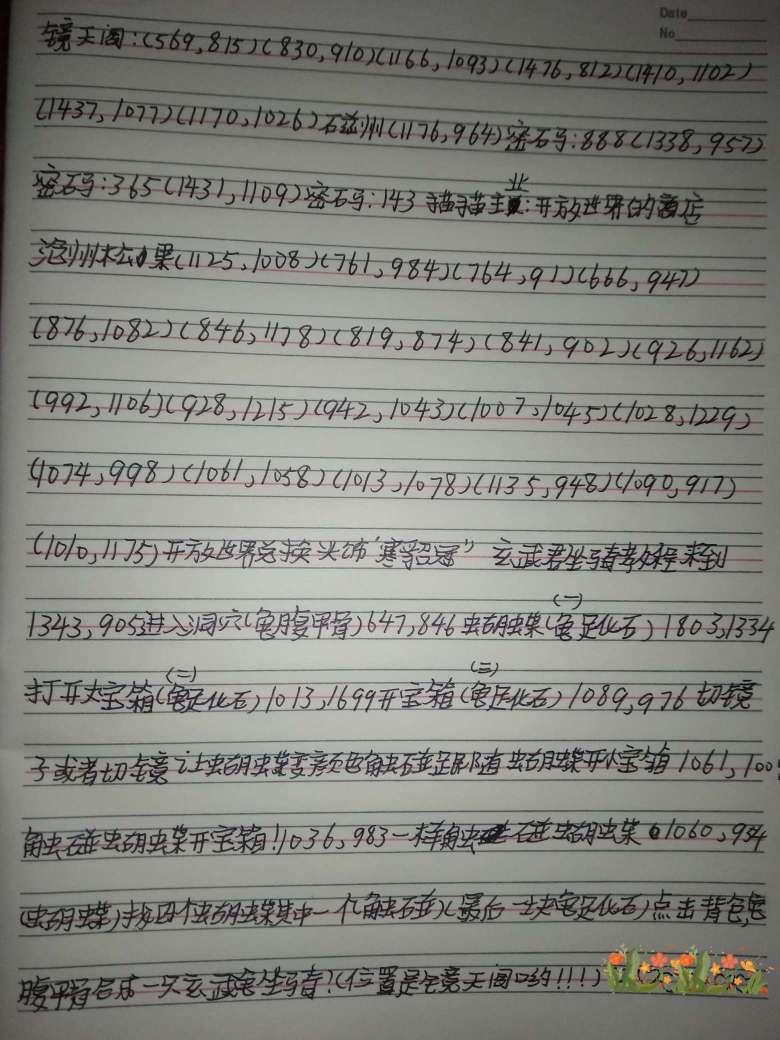 Date
No
镜天阁:(569,815)(830,910)(1166,1093)(1476,812)(1410,1102)
(1437,1077)(1170,1026)石兹州(1176,964)密石马:888(1338,957)
密石马:365(1431,1109)密石马:143猫猫主业:开放世界的酒店
沧州松果(1125,1008)(761,984)(764,91)(666,947)
(876,1082)(846,1178)(819,874)(841,902)(926,1162)
(992,1106)(928,1215)(942,1043)(1007,1045)(1028,1229)
(1074,998)(1061,1058)(1013,1078)(1135,948)(1090,917)
(1010,1175)开放世界兑换头饰“寒貂冠” 玄武君坐骑教程来到
1343,905进入洞穴(龟腹甲骨)647,846蝴蝶(龟足化石)(一)1803,1334
打开大宝箱(龟足化石)(二)1013,1699开宝箱(龟足化石)(三)1089,976切镜
子或者切镜让蝴蝶变颜色触碰跟随蝴蝶开小宝箱1061,100
触碰蝴蝶开宝箱!1036,983一样触碰蝴蝶1060,934
(蝴蝶)找四个蝴蝶其中一个(触碰)(最后一块龟足化石)点击背包龟
腹甲骨合成一只玄武龟坐骑!(位置是镜天阁哟!!!)